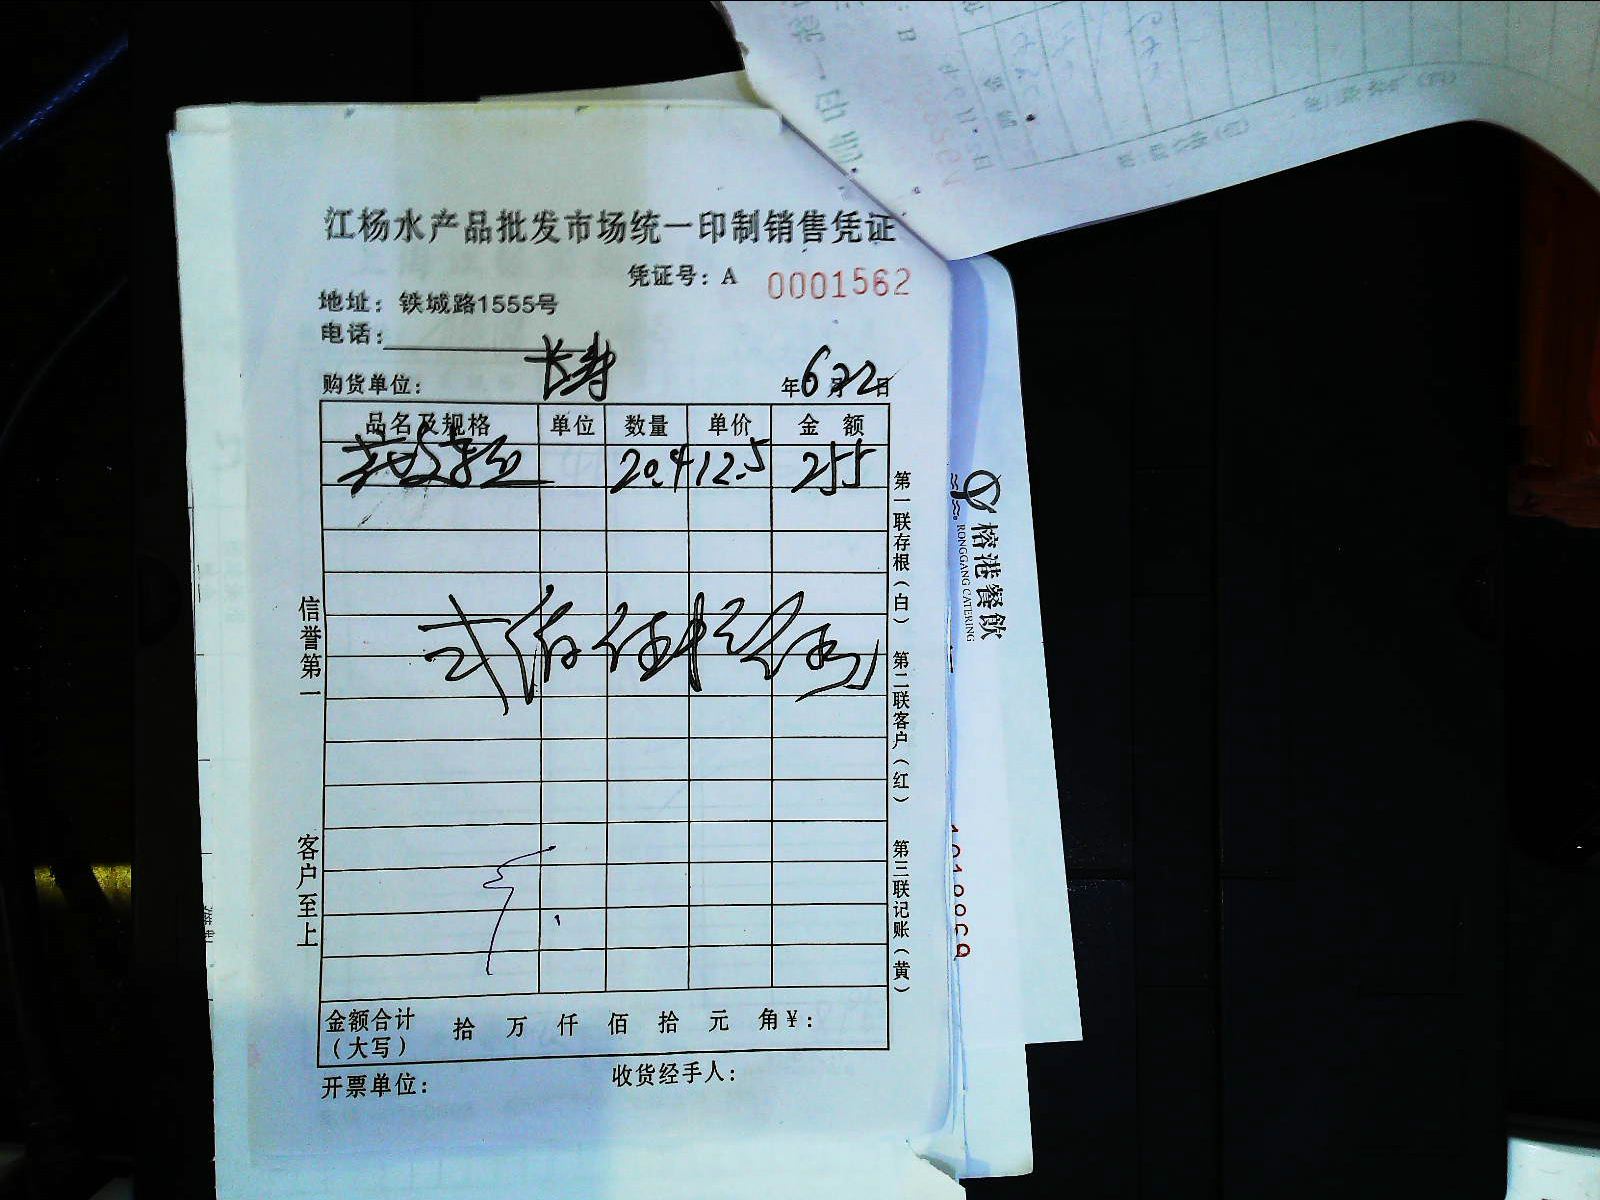 江杨水产品批发市场统一印制销售凭证
凭证号：A 0001562
地址：铁城路1555号
电话：
长寿
购货单位：
年6月22日
品名及规格 单位 数量 单价 金额
20.4 12.5 255
弍佰伍拾伍
信誉第一
客户至上
第一联存根（白）
第二联客户（红）
第三联记账（黄）
金额合计（大写） 拾 万 仟 佰 拾 元 角 ¥：
开票单位：
收货经手人：
榕港餐飲
RONGGANG CATERING